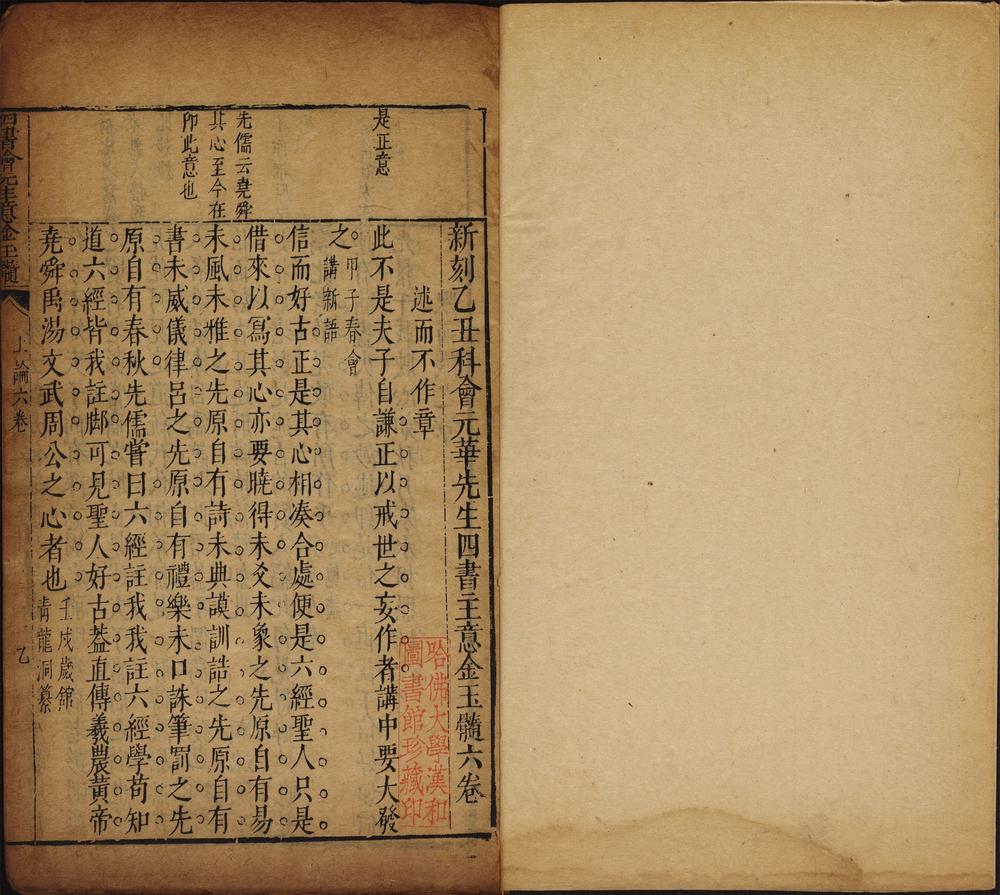 新刻乙丑科會元華先生四書主意金玉髓六卷
述而不作章
此不是夫子自謙正以戒世之妄作者講中要大發
之甲子春會
講新語
信而好古正是其心相湊合處便是六經聖人只是
借來以寫其心亦要曉得未爻未象之先原自有易
未風未雅之先原自有詩未典謨訓誥之先原自有
書未威儀律呂之先原自有禮樂未口誅筆罰之先
原自有春秋先儒嘗曰六經註我我註六經學苟知
道六經皆我註脚可見聖人好古葢直傳羲農黃帝
堯舜禹湯文武周公之心者也壬戌歲館
青龍洞纂
是正意
先儒云堯舜
其心至今在
即此意也
四書會元主意金玉髓
上論六卷
乙
哈佛大學漢和
圖書館珍藏印